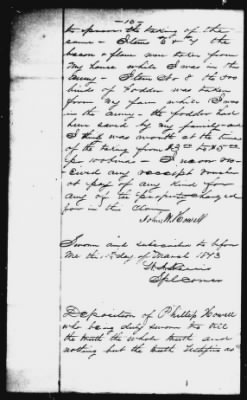 -10-
to prove the taking of the
same - Items 6 & 7 the
bacon & flour were taken from
my house while I was in the
army - Item No 8 the 500
binds of fodder was taken
from my farm while I was
in the army - the fodder had
been saved by my family - and
I think was worth at the time
of the taking from $3 to $5
pr 100 binds - I never rec-
eived any receipt voucher
or pay of any kind for
any of the property charged
for in this claim
John W. Howell
Sworn and subscribed to before
me the day of March 1873
Spl Comr
Deposition of Phillip Howell
who being duly sworn to tell
the truth the whole truth and
nothing but the truth testifies as